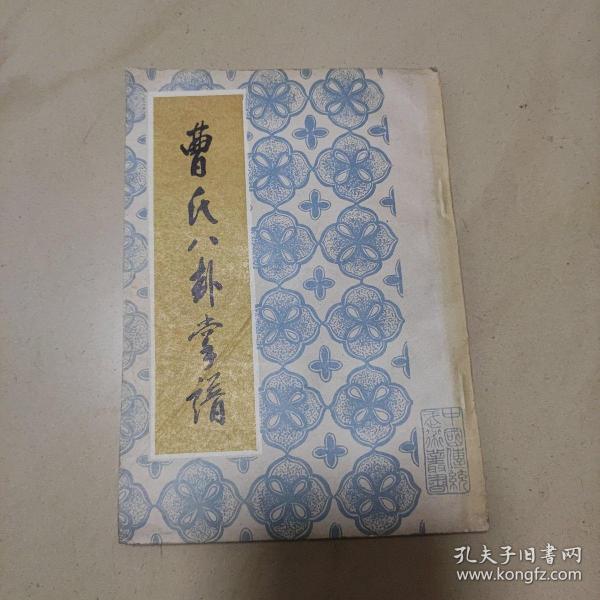 曹氏八卦掌谱
中國傳統
武術叢書
孔夫子旧书网
www.kongfz.com